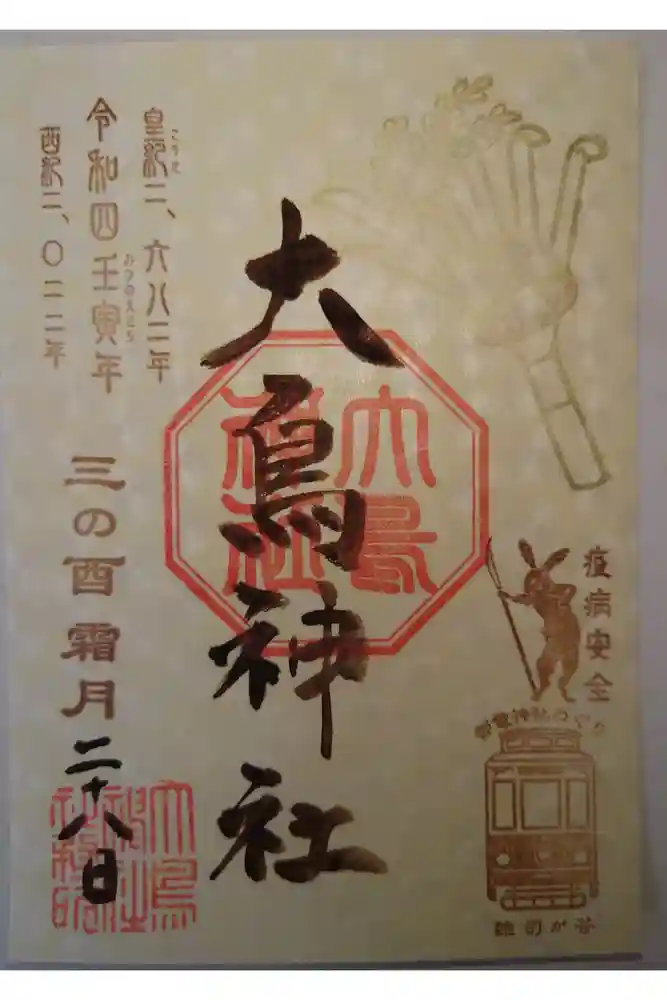 疫病安全
都電神社めぐり
雑司が谷
大鳥神社
大鳥
神社
皇紀二、六八二年
こうき
令和四壬寅年
みづのえとら
西紀二、〇二二年
三の酉 霜月二十八日
大鳥
神社